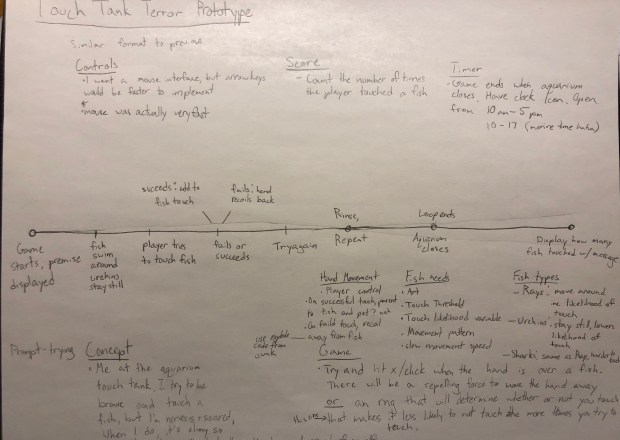 Touch Tank Terror Prototype
Similar format to previous
Controls
- I want a mouse interface, but arrow keys
would be faster to implement
* mouse was actually very fast
Score
- Count the number of times
the player touched a fish
Timer
- Game ends when aquarium
closes. Have clock icon. Open
from 10 am - 5 pm
10 - 17 (marine time haha)
succeeds: add to
fish touch
fails: hand
recoils back
Game
starts, premise
displayed
fish
swim
around
urchins
stay still
player tries
to touch fish
fails or
succeeds
Try again
Rinse,
Repeat
Loop ends
Aquarium
closes
Display how many
fish touched w/ message
Hand Movement
• Player control
• On successful touch, parent
to fish and pet?
• On failed touch, recoil
away from fish
use
code from
Fish needs
• Art
• Touch Threshold
• Touch likelihood variable
• Movement pattern
• slow movement speed
Fish types
- Rays: move around
likelihood of
touch
- Urchins: stay still, lowers
likelihood of
touch
- Sharks: same as Rays, harder to
Prompt - trying
Concept
• Me at the aquarium
touch tank. I try to be
brave and touch a
fish, but I'm nervous + scared,
When I do, it's slimy so
Game
• Try and hit x/click when the hand is over a fish.
There will be a repelling force to move the hand away
or an rng that will determine whether or not you touch
this one → that makes it less likely to not touch the more times you try to
touch.